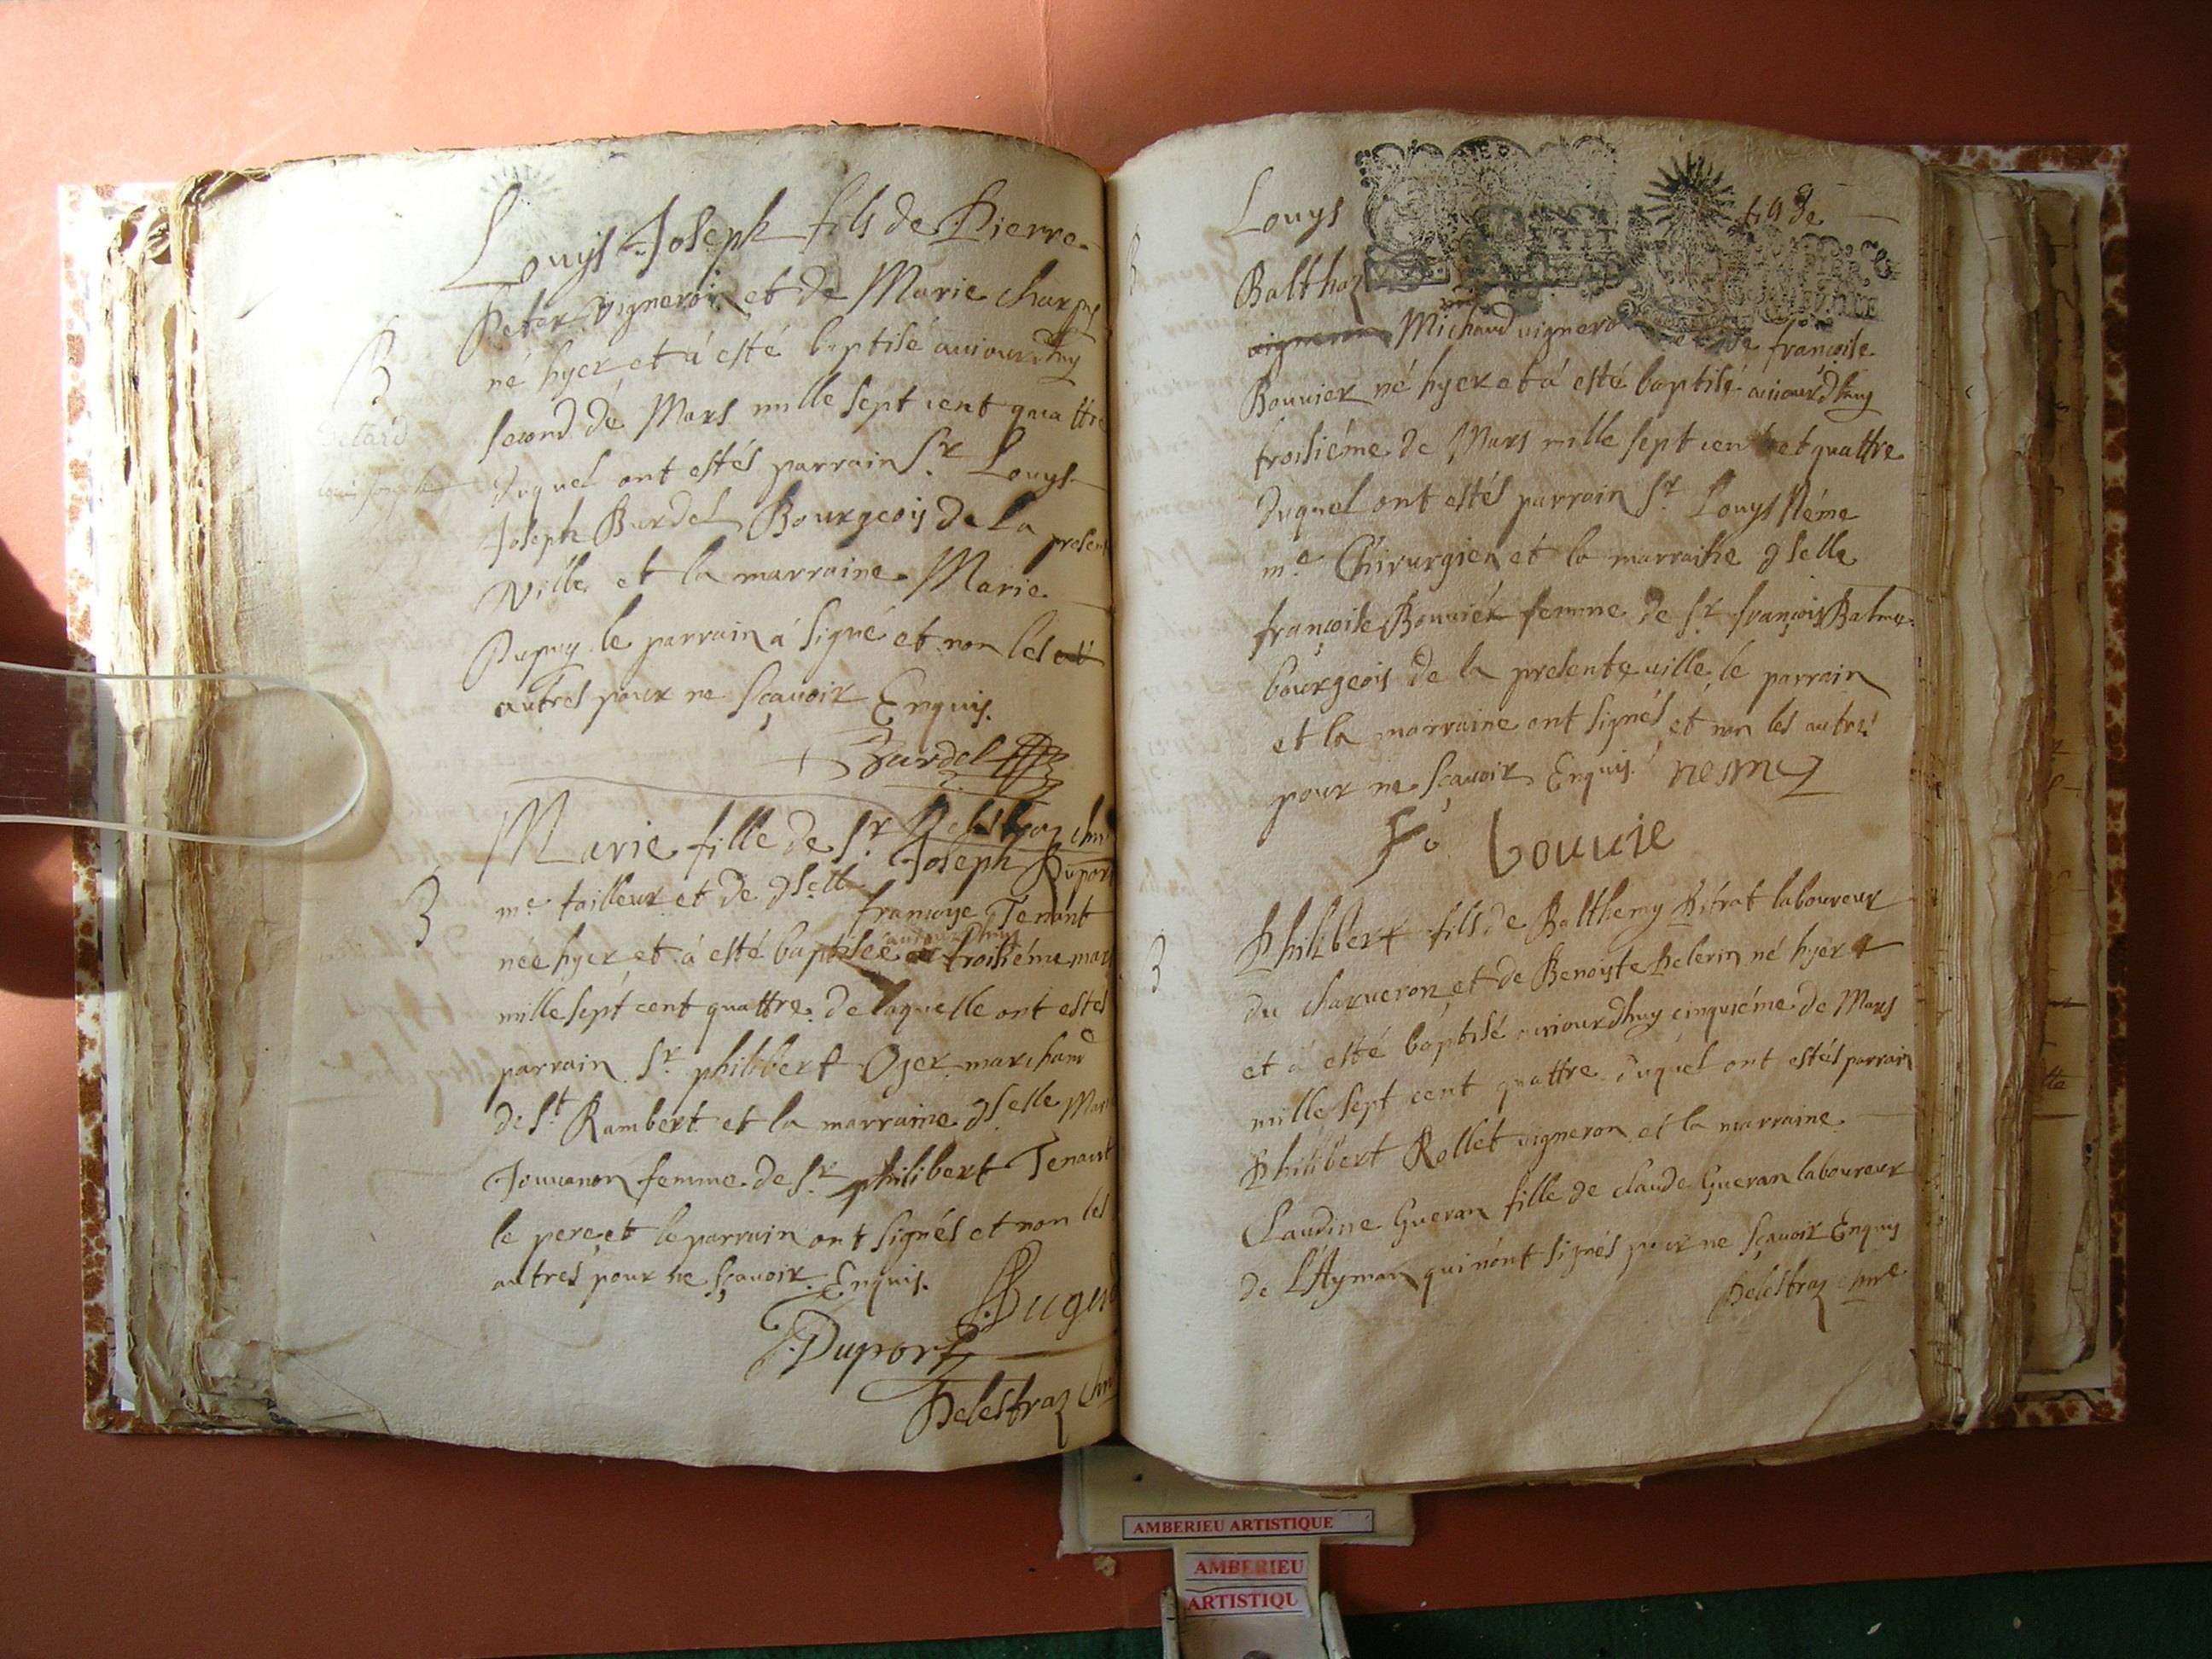 Louys Joseph fils de Pierre
vigneron et de Marie
B
né hyer et á esté baptisé auiourdhuy
second de Mars mille sept cent quattre
duquel ont estés parrain Sr. Louys
Joseph Burdel Bourgeois de La present
Ville et la marraine Marie
Dupuy le parrain á signé et non les
autres pour ne sçauoir Enquis.
Burdel
Marie fille de Sr. Delestraz
Joseph Duport
B
me tailleur et de dselle
françoise Tenant
née hyer et á esté baptisée auiourdhuy troisiéme mars
mille sept cent quattre de laquelle ont estés
parrain Sr. philibert Oger marchand
de St. Rambert et la marraine dselle
Jouuanon femme de Sr. philibert Tenant
le pere et le parrain ont signés et non les
autres pour ne sçauoir Enquis.
J. Duport
Delestraz
Louys fils de
Balthaz
vigneron Michaud vigneron et de françoise
Bouuier né hyer et á esté baptisé auiourdhuy
troisiéme de Mars mille sept cent et quattre
duquel ont estés parrain Sr. Louys Néme
me. Chirurgien et la marraine dselle
françoise Bouuier femme de Sr. françois
bourgeois de la presente uille, le parrain
et la marraine ont signés et non les autres
pour ne sçauoir Enquis. nesme
bouuie
Philibert fils de Balthemy laboureur
B
du charueron et de Benoiste Pelerin né hyer
et á esté baptisé auiourdhuy cinquiéme de Mars
mille sept cent quattre duquel ont estés parrain
Philibert Rollet vigneron et la marraine
Claudine Gueran fille de claude Gueran laboureur
de L'Ayman qui nont signés pour ne sçauoir Enquis
Delestraz
AMBERIEU ARTISTIQUE
AMBERIEU
ARTISTIQU